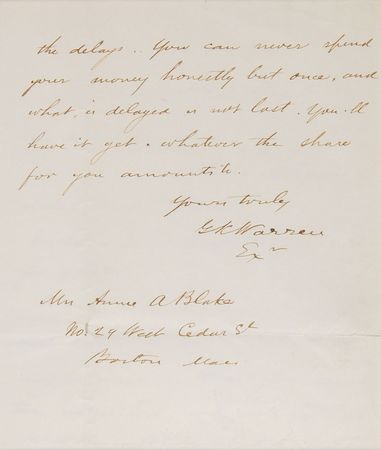 the delays.. You can never spend
your money honestly but once, and
what is delayed is not lost. You'll
have it yet. whatever the share
for you amounts to.
Yours truly
GKWarren
Exr
Mrs Annie A Blake
No. 29 West Cedar St
Boston Mass